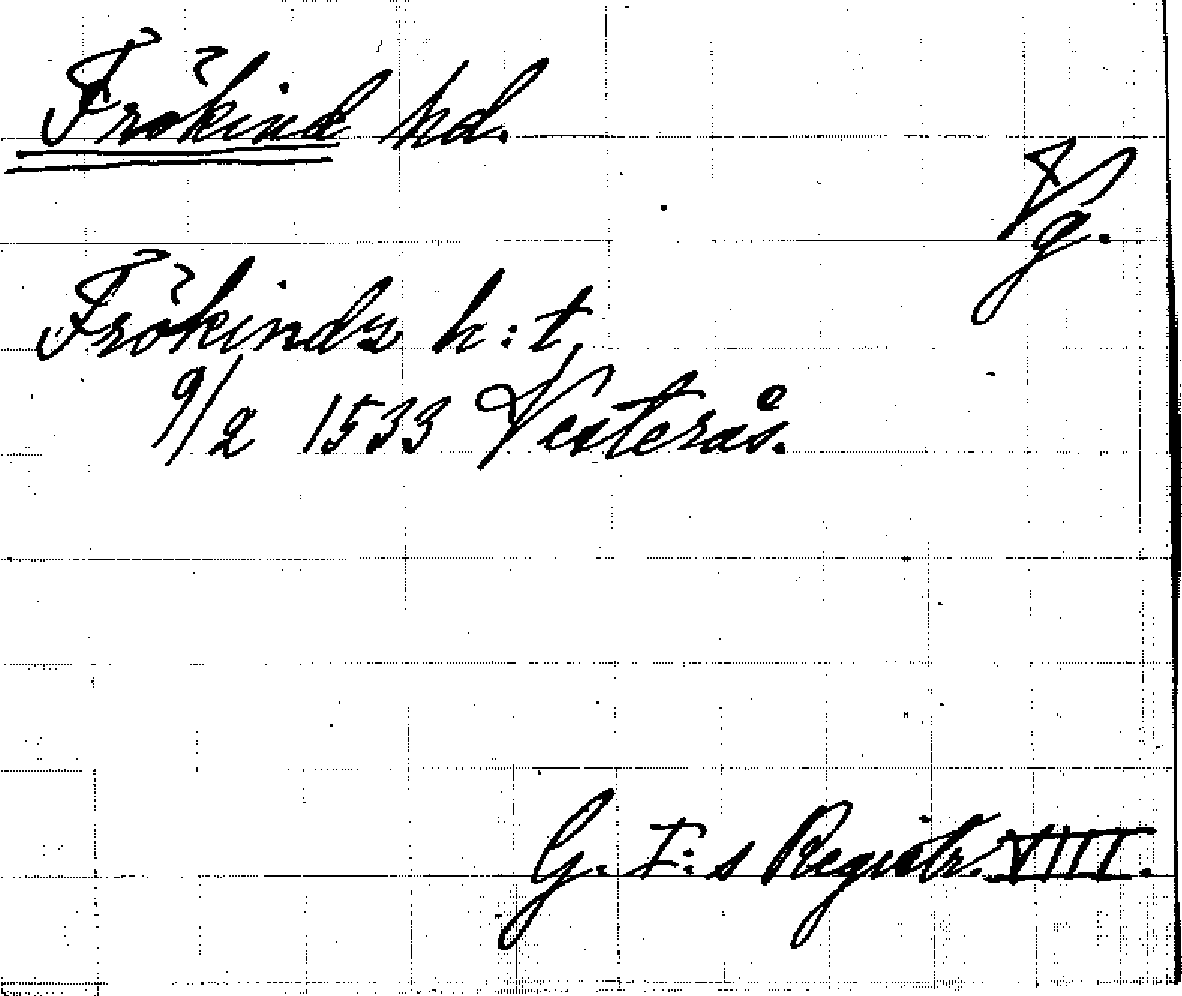 Frökind hd.
Vg.
Frökinds h:t,
9/2 1533 Vesterås.
G. I:s Registr. VIII.